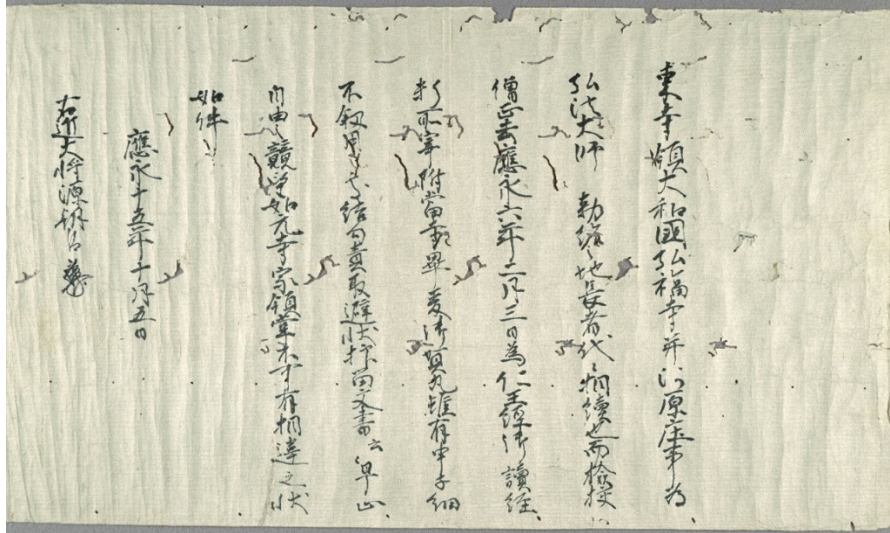 東寺領大和國弘福寺并河原庄事為
弘法大師 勅給之地長者代々相續也而檢挍
僧正去應永六年二月三日為仁王經御讀經
料所寄附當寺畢爰清賀丸雖有申子細
不叙用之結句責取避状抑留文書云々早止
自由競望如元寺家領掌不可有相違之状
如件
應永十五年十月五日
右近大将源朝臣